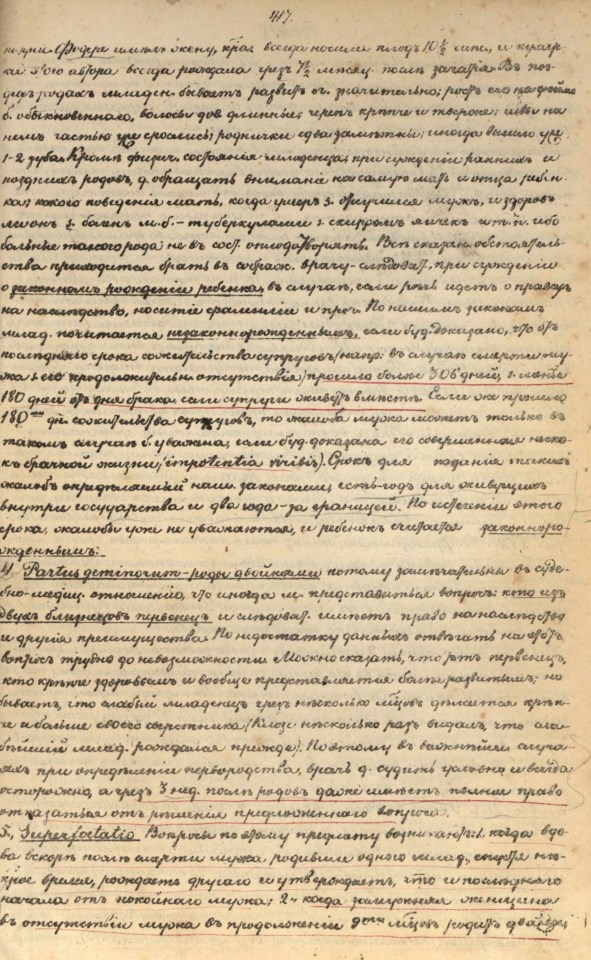 417.
поздн. Фодере имелъ жену, края всегда носила плодъ 10 ½ мѣс., и кухар-
ка этого автора всегда рождала чрезъ 7½ мѣсяц. послѣ зачатія. Въ поз-
днихъ родахъ младен. бываетъ развитъ оч. значительно; ростъ его на дюймъ
б. обыкновеннаго, волосы дов. длинные; черепъ крѣпче и тверже; швы на
немъ частью уже срослись; роднички едва замѣтны; иногда видно уже
1-2 зуба. Кромѣ физич. состоянія младенца, при сужденіи ранныхъ и
позднихъ родовъ, д. обращать вниманіе на самую мать и отца ребен-
ка; какого поведенія мать, когда умеръ s. отлучился мужъ, и здоровъ
ли онъ s. боленъ м. б. – туберкулами s. скирромъ яичек и т. п. ибо
больные такого рода не въ сост. оплодотворять. Всѣ сказан. обстоятель-
ства приходится брать въ соображ. врачу-слѣдоват. при сужденіи
о законномъ рожденіи ребенка, въ случаѣ, если рѣчь идетъ о правахъ
на наслѣдство, носитіе фамиліи и проч. По нашимъ законамъ
млад. почитается незаконнорожденнымъ, если буд. доказано, что отъ
послѣдняго срока сожительства супруговъ (напр: въ случаѣ смерти му-
жа s. его продолжительн. отсутствія) прошло болѣе 306 дней, s. менѣе
180 дней отъ дня брака, если супруги живутъ вмѣстѣ. Если же прошло
180 дн. сожительства супруговъ, то жалоба мужа можетъ только въ
такомъ случаѣ б. уважена, если буд. доказана его совершенная неспо-
къ брачной жизни (impotentia virilis). Срокъ для поданія такихъ
жалобъ опредѣляемый наш. законами, есть – годъ для живущихъ
внутри государства и два года – за границей. По истеченіи этого
срока, жалобы уже не уважаются, и ребенокъ считается законноро-
жденнымъ.
4) Partus geminorum – роды двойнями потому замѣчательны въ суде-
бно-медиц. отношеніи, что иногда м. представиться вопросъ: кто изъ
двухъ близнецовъ первенецъ и слѣдоват. имѣетъ право на наслѣдство
и другія преимущества. По недостатку данныхъ отвѣчать на этотъ
вопросъ трудно до невозможности. Можно сказать, что тотъ первенецъ,
кто крѣпче здоровьемъ и вообще представляется болѣе развитымъ; но
бываетъ, что слабый младенецъ чрезъ нѣсколько мѣсяцовъ дѣлается крѣп-
че и больше своего сверстника (Клозе нѣсколько разъ видалъ, что сла-
бѣйшій млад. рождался прежде). Поэтому въ важнѣйшихъ случа-
яхъ при опредѣленіи первородства, врачъ д. судить условно и всегда
осторожно, а чрезъ 3 нед. послѣ родовъ даже имѣетъ полное право
отказаться отъ рѣшенія предложеннаго вопроса.
5, Superfoetatio Вопросы по этому предмету возникаютъ: 1. когда вдо-
ва вскорѣ послѣ смерти мужа родивши одного млад., спустя нѣ-
крое время, рождаетъ другаго и утверждаетъ, что и послѣдняго
начала отъ покойнаго мужа; 2 – когда замужняя женщина
въ отсутствіи мужа въ продолженіи 9ти мѣсяцовъ родитъ